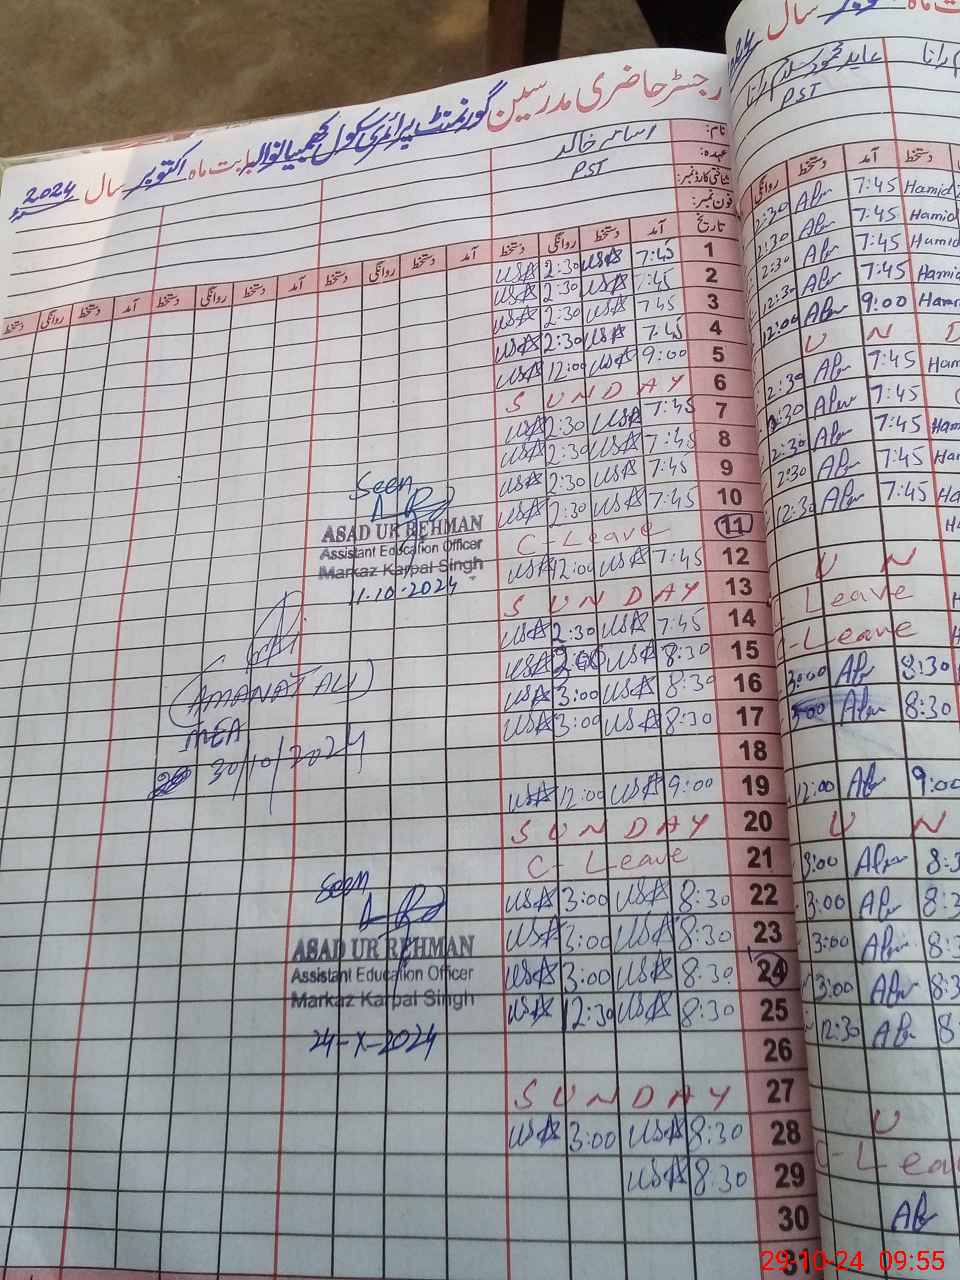 رجسٹر حاضری مدرسین گورنمنٹ پرائمری سکول کھمیانوالہ بابت ماہ اکتوبر سال 2024
نام: اسامہ خالد
عہدہ: PST
شناختی کارڈ نمبر:
فون نمبر:
تاریخ آمد دستخط روانگی دستخط آمد دستخط روانگی دستخط آمد دستخط روانگی دستخط آمد دستخط روانگی دستخط
1 7:45 USA 2:30 USA
2 7:45 USA 2:30 USA
3 7:45 USA 2:30 USA
4 7:45 USA 2:30 USA
5 9:00 USA 12:00 USA
6 SUNDAY
7 7:45 USA 2:30 USA
8 7:45 USA 2:30 USA
9 7:45 USA 2:30 USA
10 7:45 USA 2:30 USA
11 C-Leave
12 7:45 USA 12:00 USA
13 SUNDAY
14 7:45 USA 2:30 USA
15 8:30 USA USA
16 8:30 USA 3:00 USA
17 8:30 USA 3:00 USA
18
19 9:00 USA 12:00 USA
20 SUNDAY
21 C-Leave
22 8:30 USA 3:00 USA
23 8:30 USA 3:00 USA
24 8:30 USA 3:00 USA
25 8:30 USA 12:30 USA
26
27 SUNDAY
28 8:30 USA 3:00 USA
29 8:30 USA
30
31
Seen
ASAD UR REHMAN
Assistant Education Officer
Markaz Karpal Singh
11-10-2024
(AMANAT ALI)
MEA
30/10/2024
Seen
ASAD UR REHMAN
Assistant Education Officer
Markaz Karpal Singh
24-X-2024
بابت ماہ اکتوبر سال 2024
PST
آمد دستخط روانگی دستخط
2:30 7:45 Hamid
2:30 7:45 Hamid
2:30 7:45 Hamid
12:30 7:45 Hamid
12:00 9:00 Ham
U N D
2:30 7:45 Ham
2:30 7:45
2:30 7:45 Ham
2:30 7:45 Ham
12:30 7:45 Ha
U N
Leave
C-Leave
3:00 8:30
3:00 8:30
12:00 9:00
U N
3:00 8:3
3:00 8:3
3:00 8:3
3:00 8:3
12:30 8:
U
C-Lea
29-10-24 09:55